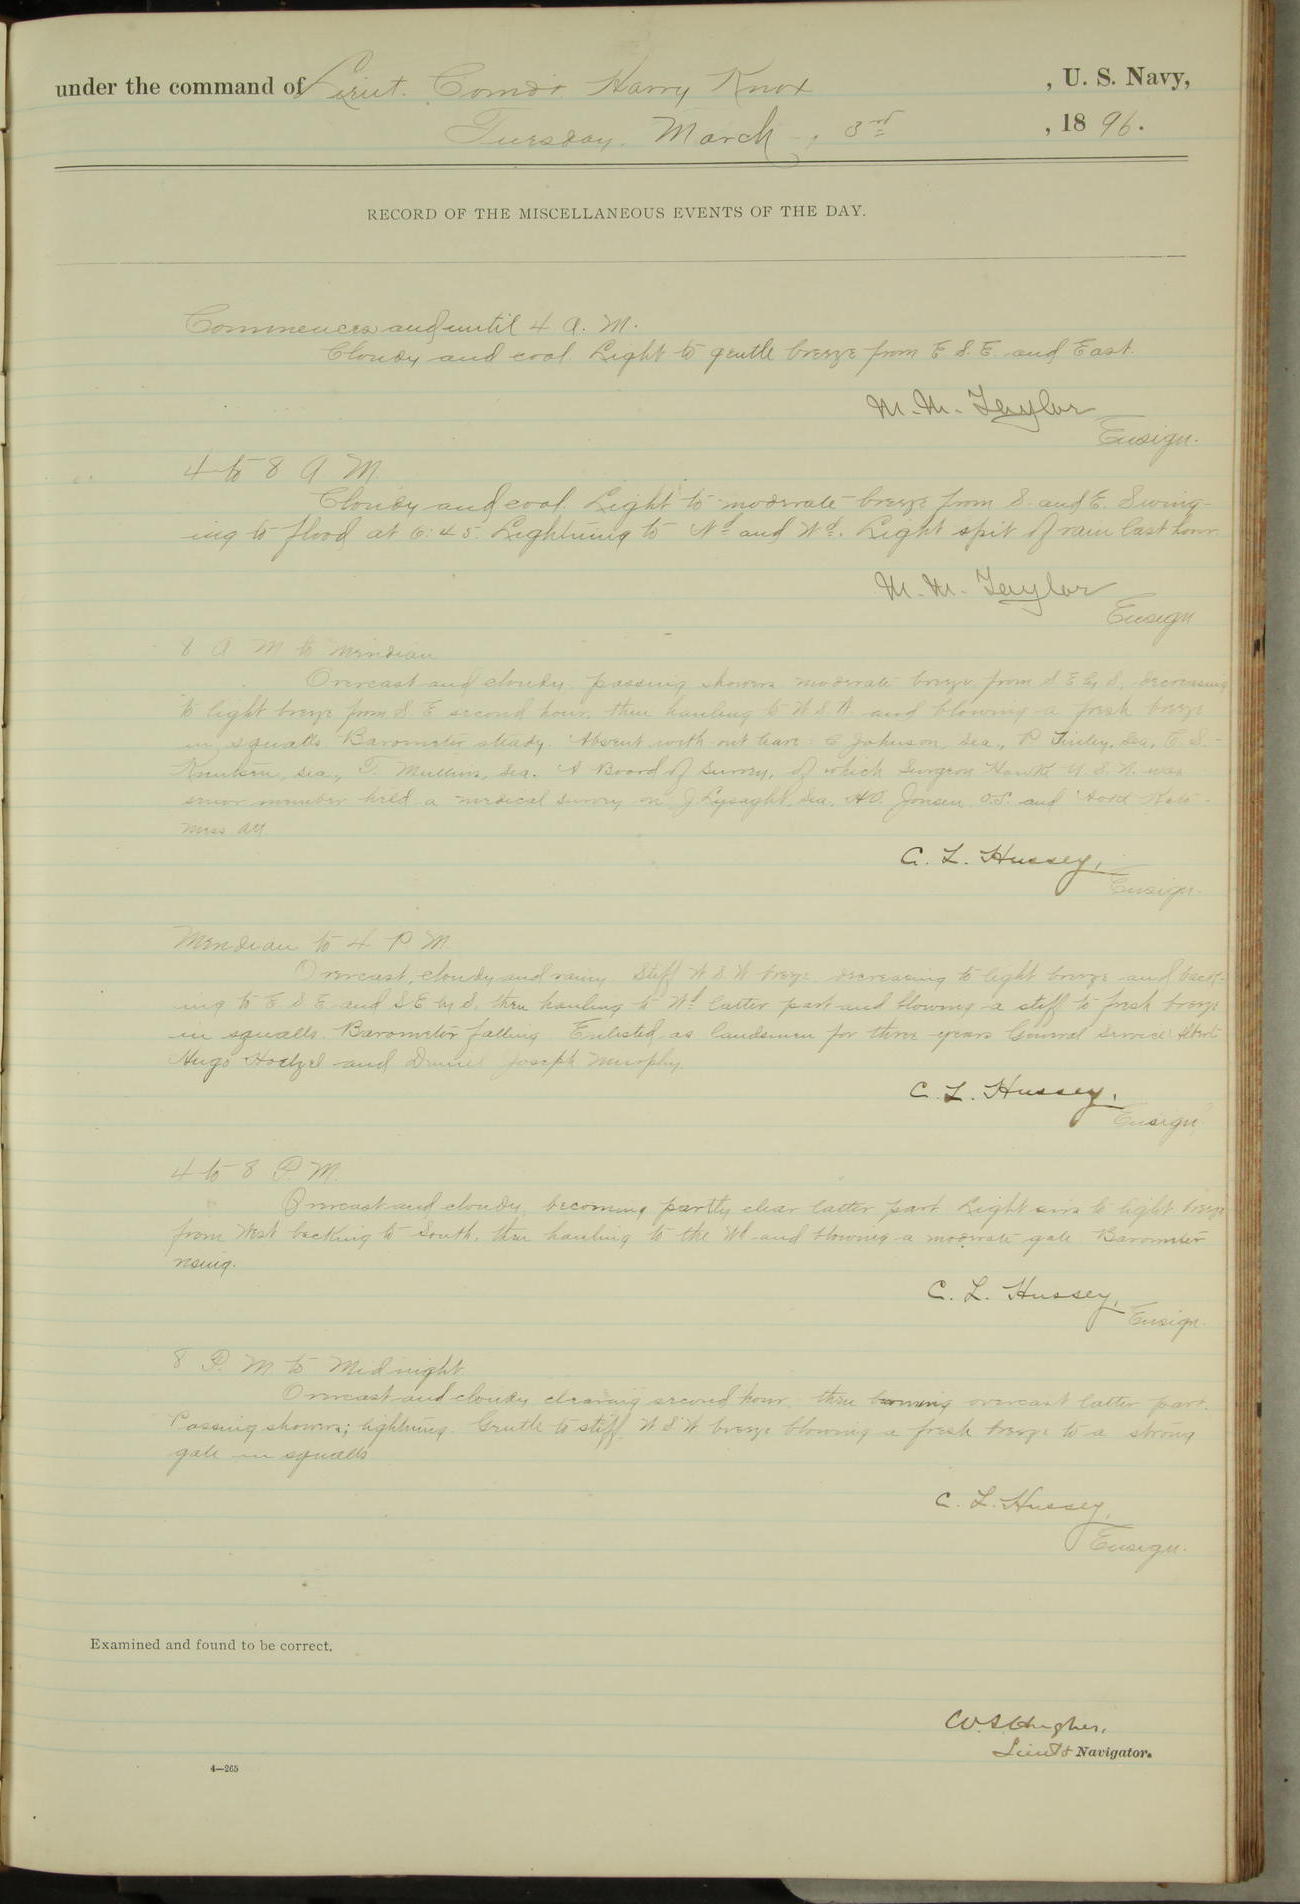 under the command of Lieut. Comdr. Harry Knox, U. S. Navy,
Tuesday, March, 3rd, 1896.
RECORD OF THE MISCELLANEOUS EVENTS OF THE DAY.
Commences and until 4 A. M.
Cloudy and cool. Light to gentle breeze from E S. E. and East.
M. M. Taylor
Ensign.
4 to 8 A M.
Cloudy and cool. Light to moderate breeze from S. and E. Swing-
ing to flood at 6:45. Lightning to Nd and Wd. Light spit of rain last hour.
M. M. Taylor
Ensign
8 A M to Meridian
Overcast and cloudy passing showers moderate breeze from S E by S. decreasing
to light breeze from S. E second hour, then hauling to W S W and blowing a fresh breeze
in squalls. Barometer steady. Absent with out leave: C Johnson, Sea., P Finley, Sea, E. S.
Knudsen, Sea., T. Mullins, Sea. A Board of Survey, of which Surgeon Hawke U S. N. was
senior member held a medical survey on J Lysaght, Sea, Jensen, O.S. and
Mess Att
C. L. Hussey,
Ensign.
Meridian to 4 P M.
Overcast, cloudy and rainy. Stiff W S W breeze decreasing to light breeze and back-
ing to E S E and S E by S. then hauling to Wd latter part and blowing a stiff to fresh breeze
in squalls. Barometer falling. Enlisted as landsmen for three years General Service: Albert
Hugo Hoelzel and Daniel Joseph Murphy.
C. L. Hussey,
Ensign
4 to 8 P. M.
Overcast and cloudy, becoming partly clear latter part. Light airs to light breeze
from West backing to South, then hauling to the Wd and blowing a moderate gale. Barometer
rising.
C. L. Hussey,
Ensign.
8 P. M. to Midnight.
Overcast and cloudy clearing second hour, then becoming overcast latter part.
Passing showers; lightning. Gentle to stiff W S W breeze blowing a fresh breeze to a strong
gale in squalls
C. L. Hussey,
Ensign.
Examined and found to be correct.
W. S. Hughes,
Lieut & Navigator.
4—265